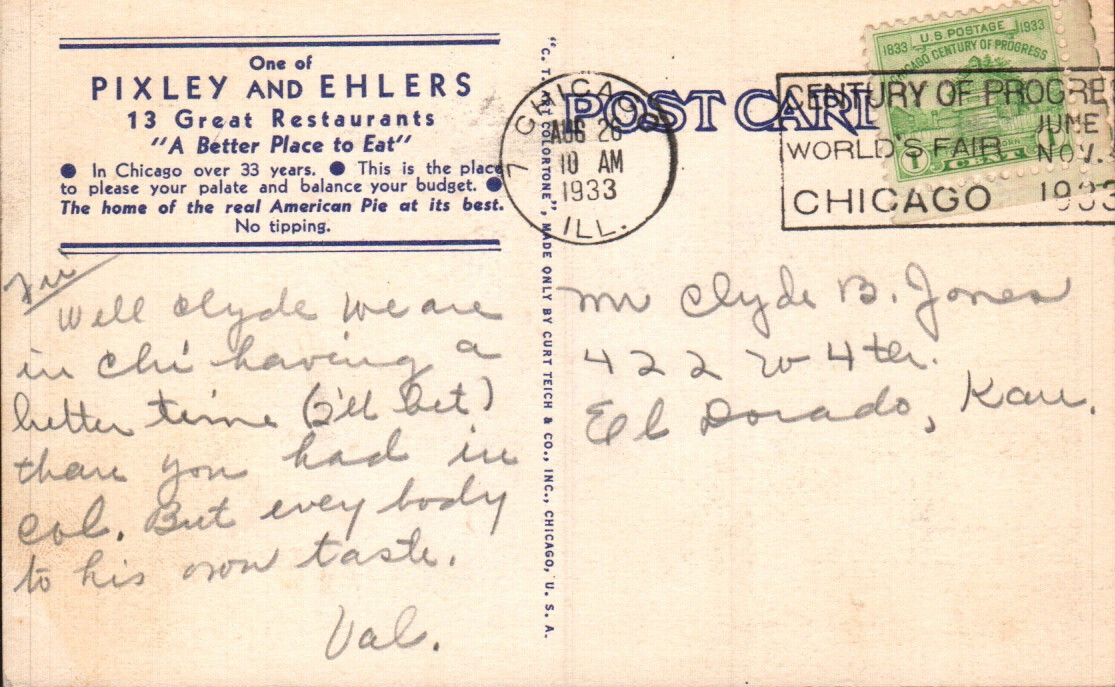 One of
PIXLEY AND EHLERS
13 Great Restaurants
"A Better Place to Eat"
● In Chicago over 33 years. ● This is the place
to please your palate and balance your budget. ●
The home of the real American Pie at its best.
No tipping.
Fri
Well Clyde we are
in Chi having a
better time (I'll bet)
than you had in
Col. But every body
to his own taste.
Val.
"C. T. ART COLORTONE", MADE ONLY BY CURT TEICH & CO., INC., CHICAGO, U. S. A.
POST CARD
CHICAGO
7
AUG 26
10 AM
1933
ILL.
U.S. POSTAGE
1833 1933
CHICAGO CENTURY OF PROGRESS
1 CENT
CENTURY OF PROGRE
JUNE 1
WORLD'S FAIR NOV. 
CHICAGO 1933
Mr Clyde B. Jones
422 W 4th.
El Dorado, Kan.